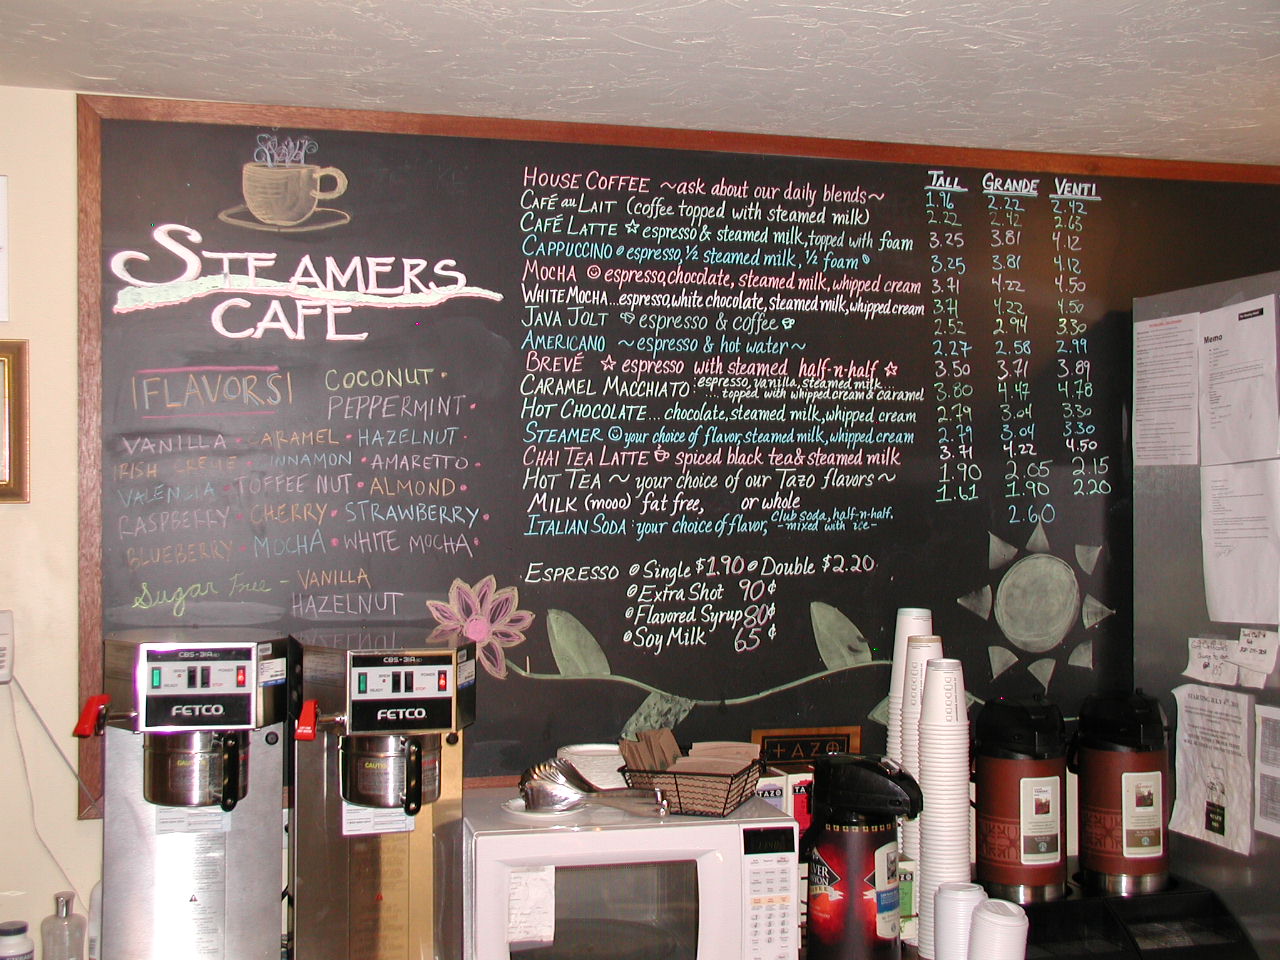 STEAMERS
CAFE
FLAVORS
COCONUT
PEPPERMINT
VANILLA CARAMEL HAZELNUT
IRISH CREME CINNAMON AMARETTO
VALENCIA TOFFEE NUT ALMOND
RASPBERRY CHERRY STRAWBERRY
BLUEBERRY MOCHA WHITE MOCHA
Sugar Free - VANILLA
HAZELNUT
TALL GRANDE VENTI
HOUSE COFFEE ~ask about our daily blends~ 1.96 2.22 2.42
CAFÉ au LAIT (coffee topped with steamed milk) 2.22 2.42 2.63
CAFÉ LATTE ☆ espresso & steamed milk, topped with foam 3.25 3.81 4.12
CAPPUCCINO espresso, ½ steamed milk, ½ foam 3.25 3.81 4.12
MOCHA ☺ espresso, chocolate, steamed milk, whipped cream 3.71 4.22 4.50
WHITE MOCHA... espresso, white chocolate, steamed milk, whipped cream 3.71 4.22 4.50
JAVA JOLT espresso & coffee 2.52 2.94 3.30
AMERICANO ~ espresso & hot water ~ 2.27 2.58 2.99
BREVÉ ☆ espresso with steamed half-n-half ☆ 3.50 3.71 3.89
CARAMEL MACCHIATO: espresso, vanilla, steamed milk... 3.80 4.47 4.78
...topped with whipped cream & caramel
HOT CHOCOLATE... chocolate, steamed milk, whipped cream 2.79 3.04 3.30
STEAMER ☺ your choice of flavor, steamed milk, whipped cream 2.79 3.04 3.30
CHAI TEA LATTE spiced black tea & steamed milk 3.71 4.22 4.50
HOT TEA ~ your choice of our Tazo flavors ~ 1.90 2.05 2.15
MILK (moo) fat free, or whole 1.61 1.90 2.20
ITALIAN SODA: your choice of flavor, club soda, half-n-half, 2.60
-mixed with ice-
ESPRESSO Single $1.90 Double $2.20
Extra Shot 90¢
Flavored Syrup 80¢
Soy Milk 65¢
Memo
CBS-31A
BREW POWER
READY STOP
FETCO
CAUTION
CBS-31A
BREW POWER
READY STOP
FETCO
CAUTION
TAZO
TAZO